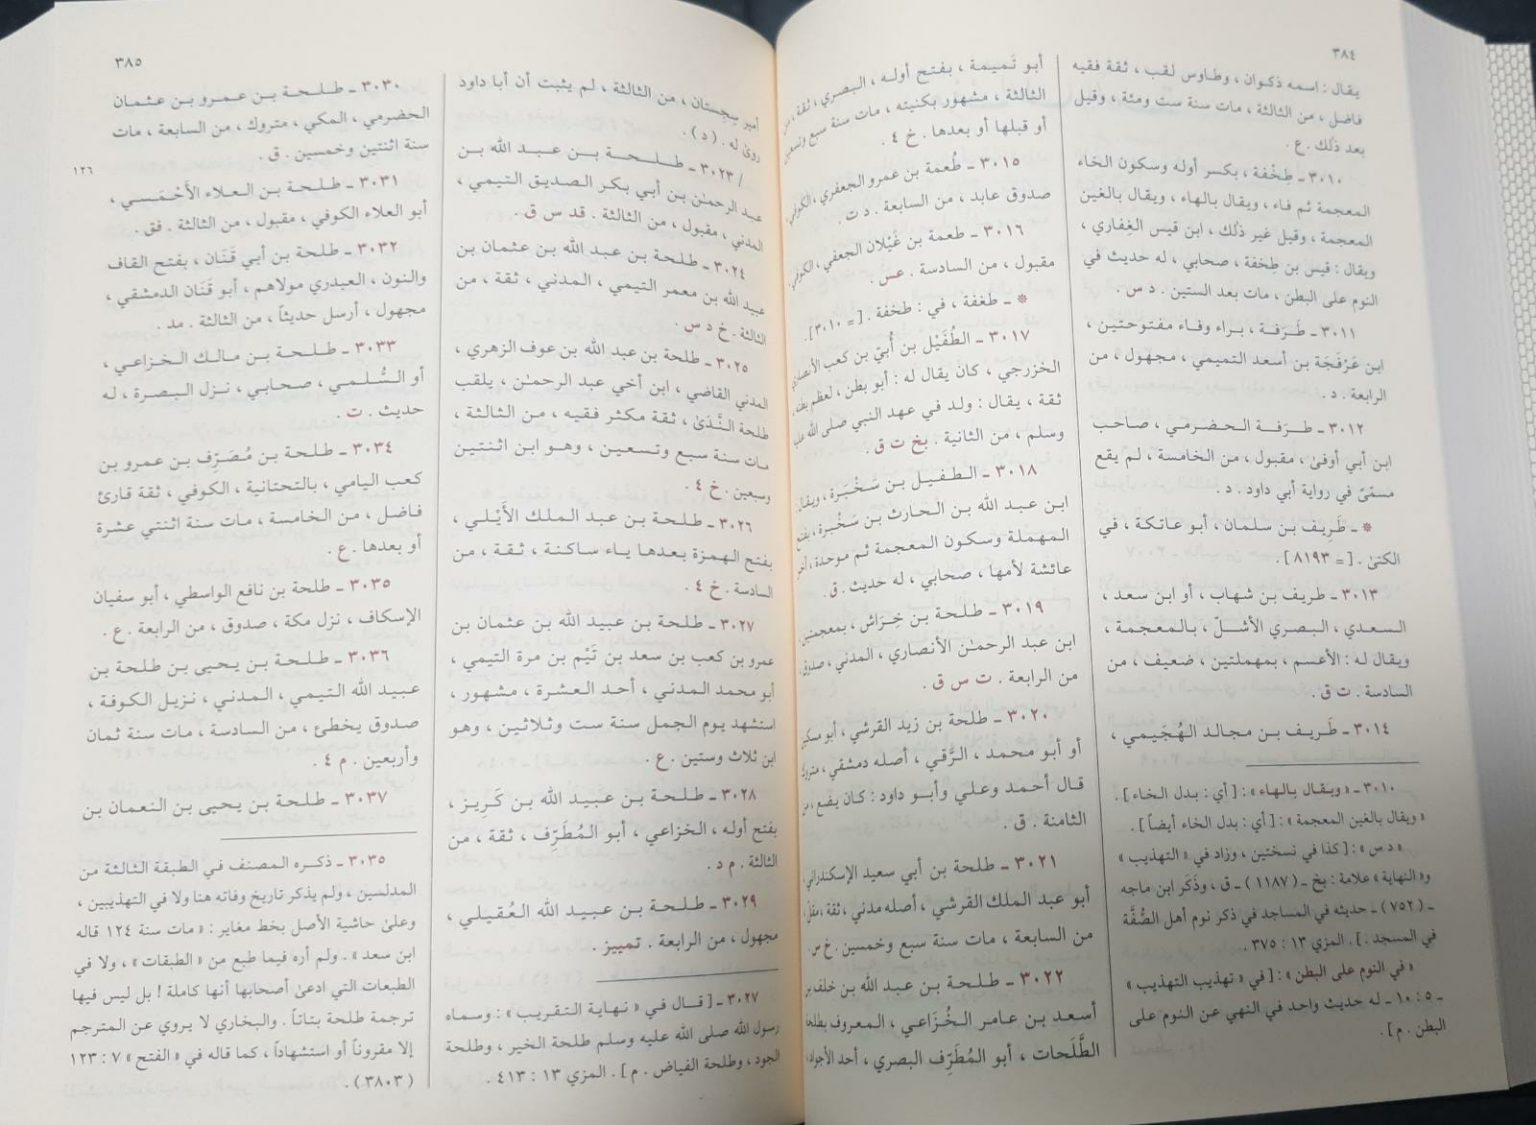 ٣٨٤
يقال : اسمه ذكوان ، وطاوس لقب ، ثقة فقيه
فاضل ، من الثالثة ، مات سنة ست ومئة ، وقيل
بعد ذلك . ع .
٣٠١٠ ـ طِخْفة ، بكسر أوله وسكون الخاء
المعجمة ثم فاء ، ويقال بالهاء ، ويقال بالغين
المعجمة ، وقيل غير ذلك ، ابن قيس الغِفاري ،
ويقال : قيس بن طخفة ، صحابي ، له حديث في
النوم على البطن ، مات بعد الستين . د س .
٣٠١١ ـ طَرَفة ، براء وفاء مفتوحتين ،
ابن عَرْفَجَة بن أسعد التميمي ، مجهول ، من
الرابعة . د .
٣٠١٢ ـ طرَفة الحضرمي ، صاحب
ابن أبي أوفىٰ ، مقبول ، من الخامسة ، لم يقع
مسمّىً في رواية أبي داود . د .
* ـ طَرِيف بن سلمان ، أبو عاتكة ، في
الكنىٰ . [ = ٨١٩٣ ] .
٣٠١٣ ـ طريف بن شهاب ، أو ابن سعد ،
السعدي ، البصري الأشلّ ، بالمعجمة ،
ويقال له : الأعسم ، بمهملتين ، ضعيف ، من
السادسة . ت ق .
٣٠١٤ ـ طَريف بن مجالد الهُجَيمي ،
٣٠١٠ ـ « ويقال بالهاء » : [ أي : بدل الخاء ] .
« ويقال بالغين المعجمة » : [ أي : بدل الخاء أيضاً ] .
« د س » : [ كذا في نسختين ، وزاد في « التهذيب »
و« النهاية » علامة : بخ ـ ( ١١٨٧ ) ـ ق ، وذكَر ابن ماجه
ـ ( ٧٥٢ ) ـ حديثه في المساجد في ذكر نوم أهل الصُّفَّة
في المسجد . ] . المزي ١٣ : ٣٧٥ .
« في النوم على البطن » : [ في « تهذيب التهذيب »
ـ ٥ : ١٠ ـ له حديث واحد في النهي عن النوم على
البطن . م ] .
أبو تَميمة ، بفتح أوله ، البصري ، ثقة ، من
الثالثة ، مشهور بكنيته ، مات سنة سبع وتسعين
أو قبلها أو بعدها . خ ٤ .
٣٠١٥ ـ طُعمة بن عمرو الجعفري ، الكوفي ،
صدوق عابد ، من السابعة . د ت .
٣٠١٦ ـ طعمة بن غَيْلان الجعفي ، الكوفي ،
مقبول ، من السادسة . عس .
* ـ طغفة ، في : طخفة . [ = ٣٠١٠ ] .
٣٠١٧ ـ الطُفَيْل بن أُبيّ بن كعب الأنصاري
الخزرجي ، كان يقال له : أبو بطن ، لعظم بطنه ،
ثقة ، يقال : ولد في عهد النبي صلى الله عليه
وسلم ، من الثانية . بخ ت ق .
٣٠١٨ ـ الطفيل بن سَخْبَرة ، ويقال
ابن عبد الله بن الحارث بن سَخْبرة ، بفتح
المهملة وسكون المعجمة ثم موحدة ، أخو
عائشة لأمها ، صحابي ، له حديث . ق .
٣٠١٩ ـ طلحة بن خِرَاش ، بمعجمتين ،
ابن عبد الرحمٰن الأنصاري ، المدني ، صدوق ،
من الرابعة . ت س ق .
٣٠٢٠ ـ طلحة بن زيد القرشي ، أبو مسكين
أو أبو محمد ، الرَّقي ، أصله دمشقي ، متروك
قال أحمد وعلي وأبو داود : كان يضع ، من
الثامنة . ق .
٣٠٢١ ـ طلحة بن أبي سعيد الإسكندراني ،
أبو عبد الملك القرشي ، أصله مدني ، ثقة ، مقلّ ،
من السابعة ، مات سنة سبع وخمسين . خ س .
٣٠٢٢ ـ طلحة بن عبد الله بن خلف بن
أسعد بن عامر الخُزَاعي ، المعروف بطلحة
الطَّلَحات ، أبو المُطَرِّف البصري ، أحد الأجواد ،
٣٨٥
أمير سِجِستان ، من الثالثة ، لم يثبت أن أبا داود
روىٰ له . ( د ) .
/ ٣٠٢٣ ـ طلحة بن عبد الله بن
عبد الرحمٰن بن أبي بكر الصديق التيمي ،
المدني ، مقبول ، من الثالثة . قد س ق .
٣٠٢٤ ـ طلحة بن عبد الله بن عثمان بن
عبيد الله بن معمر التيمي ، المدني ، ثقة ، من
الثالثة . خ د س .
٣٠٢٥ ـ طلحة بن عبد الله بن عوف الزهري ،
المدني القاضي ، ابن أخي عبد الرحمٰن ، يلقب
طلحة النَّدَىٰ ، ثقة مكثر فقيه ، من الثالثة ،
مات سنة سبع وتسعين ، وهو ابن اثنتين
وسبعين . خ ٤ .
٣٠٢٦ ـ طلحة بن عبد الملك الأَيْلي ،
بفتح الهمزة بعدها ياء ساكنة ، ثقة ، من
السادسة . خ ٤ .
٣٠٢٧ ـ طلحة بن عبيد الله بن عثمان بن
عمرو بن كعب بن سعد بن تَيْم بن مرة التيمي ،
أبو محمد المدني ، أحد العشرة ، مشهور ،
استشهد يوم الجمل سنة ست وثلاثين ، وهو
ابن ثلاث وستين . ع .
٣٠٢٨ ـ طلحة بن عبيد الله بن كَرِيز ،
بفتح أوله ، الخزاعي ، أبو المُطَرِّف ، ثقة ، من
الثالثة . م د .
٣٠٢٩ ـ طلحة بن عبيد الله العُقيلي ،
مجهول ، من الرابعة . تمييز .
٣٠٢٧ ـ [ قال في « نهاية التقريب » : وسماه
رسول الله صلى الله عليه وسلم طلحة الخير ، وطلحة
الجود ، وطلحة الفياض . م ] . المزي ١٣ : ٤١٣ .
٣٠٣٠ ـ طلحة بن عمرو بن عثمان
الحضرمي ، المكي ، متروك ، من السابعة ، مات
سنة اثنتين وخمسين . ق .
١٢٦
٣٠٣١ ـ طلحة بن العلاء الأحْمَسي ،
أبو العلاء الكوفي ، مقبول ، من الثالثة . فق .
٣٠٣٢ ـ طلحة بن أبي قَنَان ، بفتح القاف
والنون ، العبدري مولاهم ، أبو قَنَان الدمشقي ،
مجهول ، أرسل حديثاً ، من الثالثة . مد .
٣٠٣٣ ـ طلحة بن مالك الخزاعي ،
أو السُّلمي ، صحابي ، نزل البصرة ، له
حديث . ت .
٣٠٣٤ ـ طلحة بن مُصَرِّف بن عمرو بن
كعب اليامي ، بالتحتانية ، الكوفي ، ثقة قارئ
فاضل ، من الخامسة ، مات سنة اثنتي عشرة
أو بعدها . ع .
٣٠٣٥ ـ طلحة بن نافع الواسطي ، أبو سفيان
الإسكاف ، نزل مكة ، صدوق ، من الرابعة . ع .
٣٠٣٦ ـ طلحة بن يحيى بن طلحة بن
عبيد الله التيمي ، المدني ، نزيل الكوفة ،
صدوق يخطئ ، من السادسة ، مات سنة ثمان
وأربعين . م ٤ .
٣٠٣٧ ـ طلحة بن يحيى بن النعمان بن
٣٠٣٥ ـ ذكره المصنف في الطبقة الثالثة من
المدلسين ، ولم يذكر تاريخ وفاته هنا ولا في التهذيبين ،
وعلىٰ حاشية الأصل بخط مغاير : « مات سنة ١٢٤ قاله
ابن سعد » . ولم أره فيما طبع من « الطبقات » ، ولا في
الطبعات التي ادعىٰ أصحابها أنها كاملة ! بل ليس فيها
ترجمة طلحة بتاتاً . والبخاري لا يروي عن المترجم
إلا مقروناً أو استشهاداً ، كما قاله في « الفتح » ٧ : ١٢٣
( ٣٨٠٣ ) .